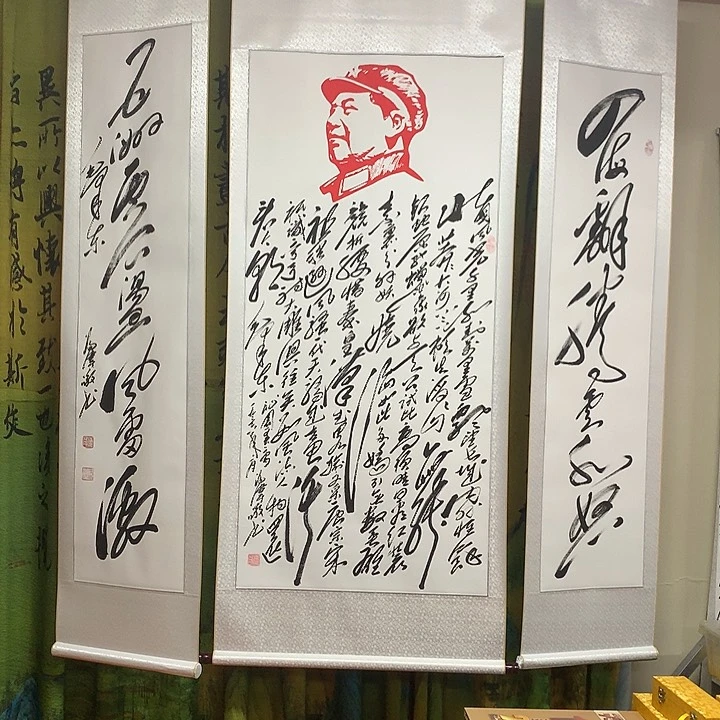 四海翻騰雲水怒
北国风光千里冰封万里雪飘望长城内外惟余
莽莽大河上下顿失滔滔山舞
银蛇原驰蜡象欲与天公试比高须晴日看红装
素裹分外妖娆江山如此多娇引无数英雄
竞折腰惜秦皇汉武略输文采唐宗宋
祖稍逊风骚一代天骄成吉思汗
只识弯弓射大雕俱往矣数风流人物还
看今朝 毛泽东
五洲震盪风雷激
毛泽东
異所以興懷其致一也後之攬
者亦將有感於斯文